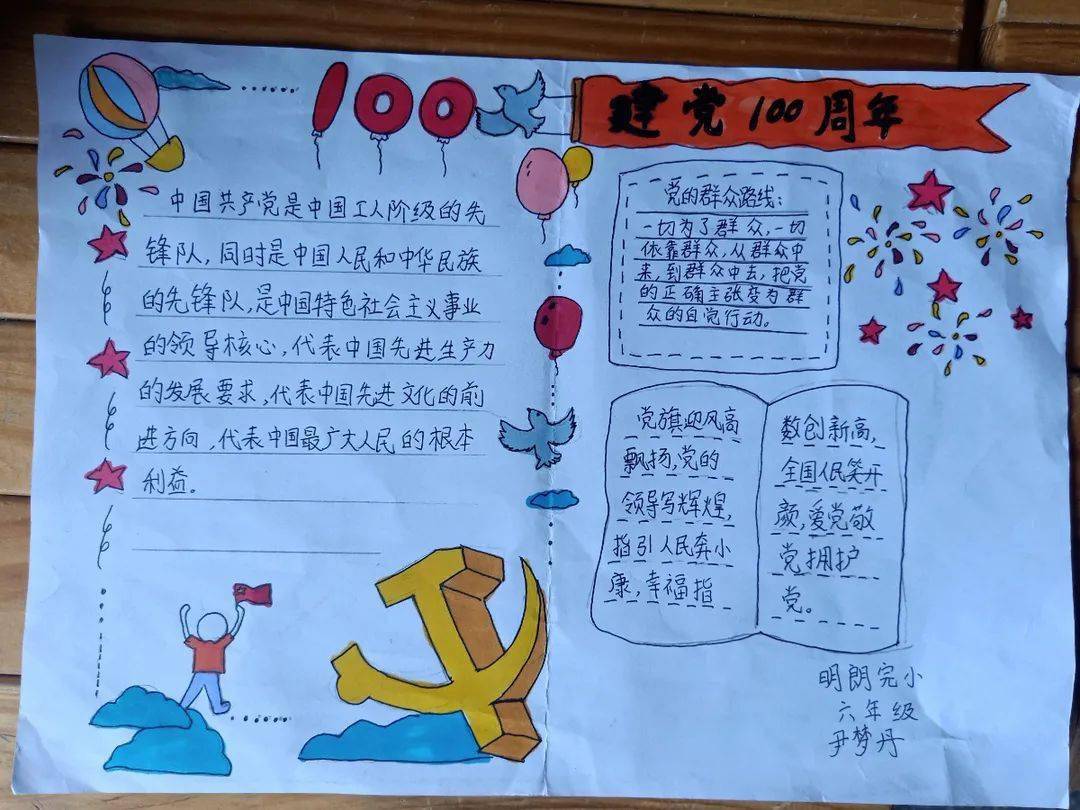 100
建党100周年
中国共产党是中国工人阶级的先
锋队,同时是中国人民和中华民族
的先锋队,是中国特色社会主义事业
的领导核心,代表中国先进生产力
的发展要求,代表中国先进文化的前
进方向,代表中国最广大人民的根本
利益。
党的群众路线:
一切为了群众,一切
依靠群众,从群众中
来,到群众中去,把党
的正确主张变为群
众的自觉行动。
党旗迎风高
飘扬,党的
领导写辉煌,
指引人民奔小
康,幸福指
数创新高,
全国人民笑开
颜,爱党敬
党拥护
党。
明朗完小
六年级
尹梦丹